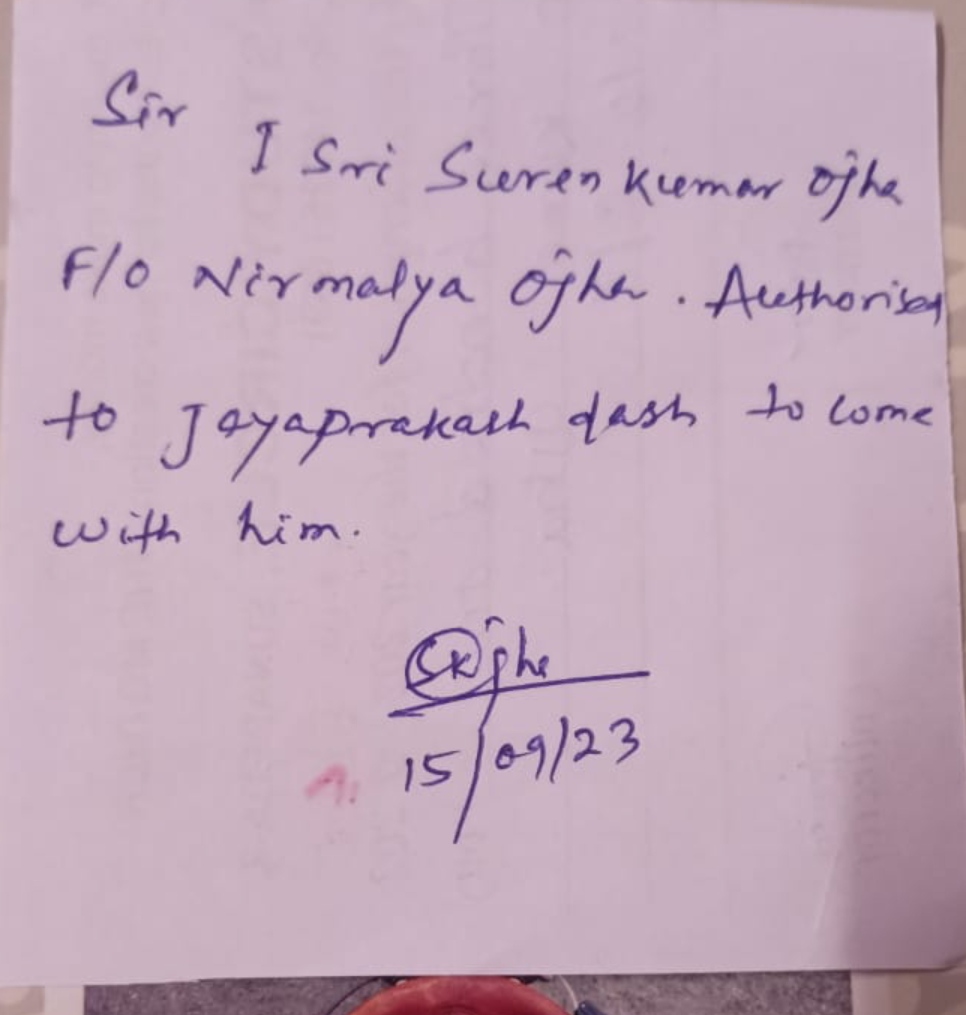 Sir
I Sri Suren Kumar Ojha
F/O Nirmalya Ojha. Authorised
to Jayaprakash dash to come
with him.
SKOjha
15/09/23